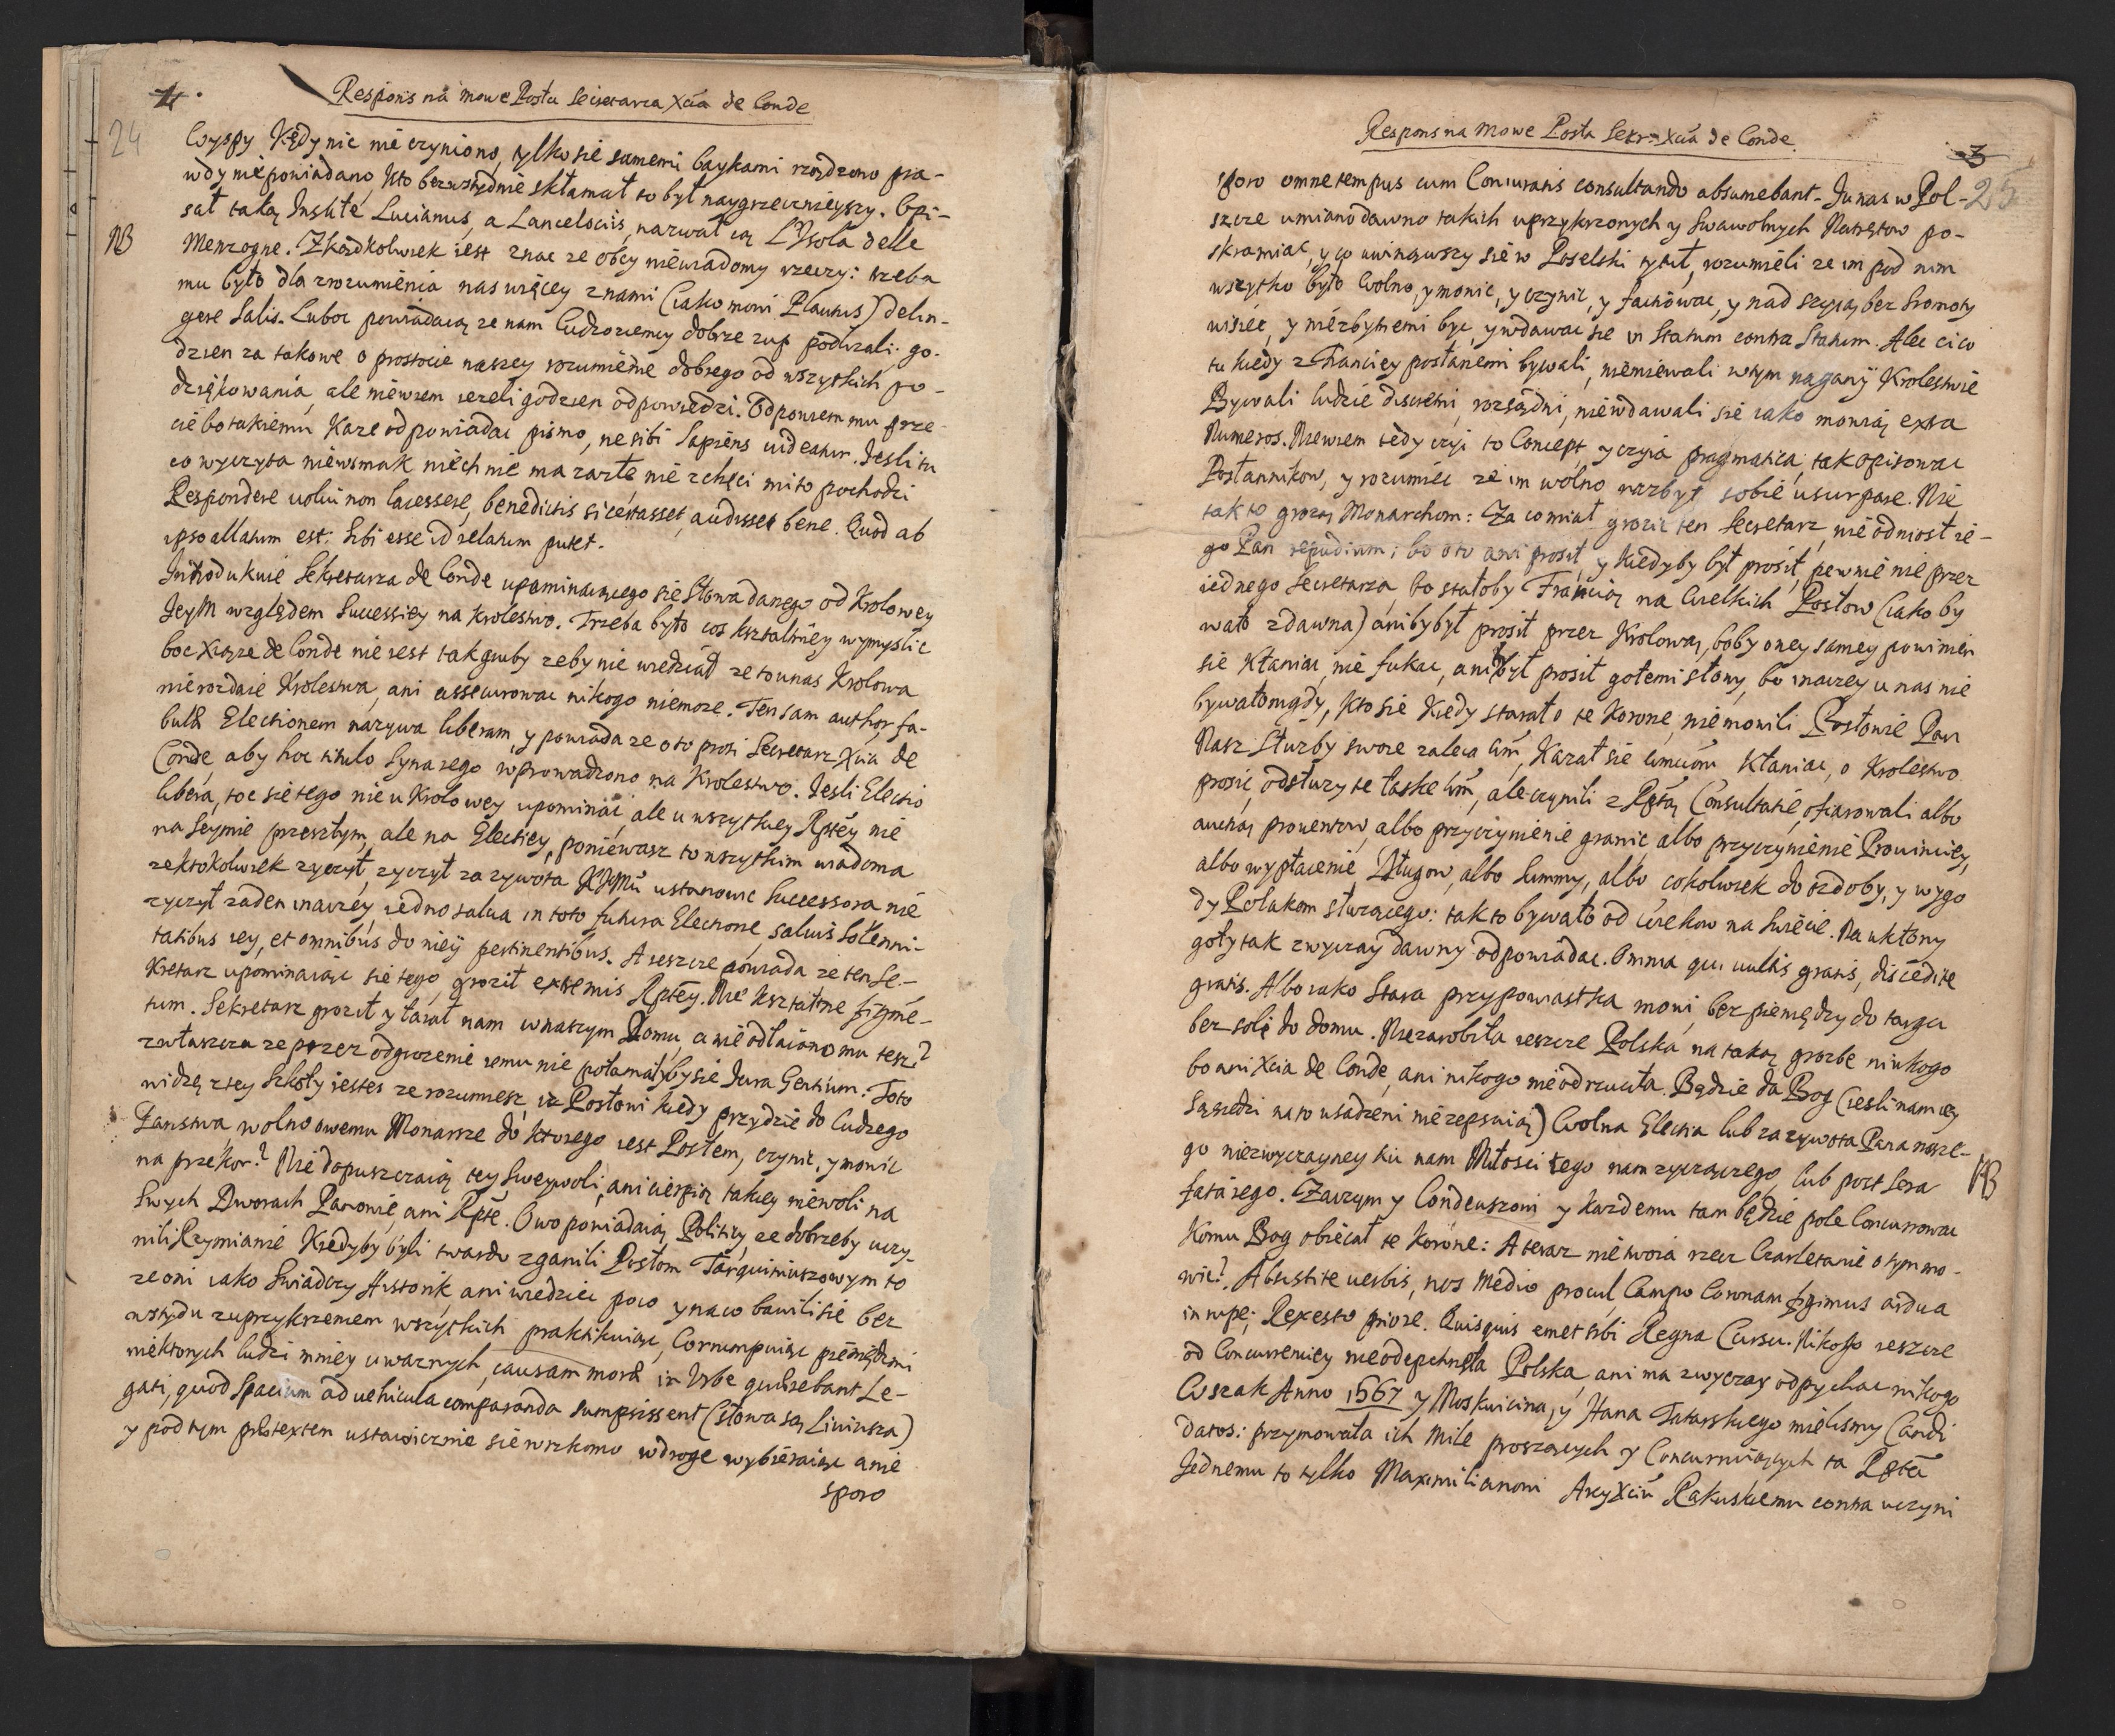 4.
24
Respons na mowe Posła Secretarza Xcia de Conde
Wyspy Kędy nic nie czyniono, tylko sie samemi baykami rządzono pra-
wdy nie powiadano, kto bezwstydnie skłamał to był naygrzecznieyszy. Opi-
sał taką Insulę Lucianus, a Lancelociis, nazwał ią L'Isola delle
NB
Menzogne. Zkądkolwiek iest znac ze obcy niewiadomy rzeczy: trzeba
mu było dla zrozumienia nas więcey znami (iako mowi Plautus) delin-
gere salis. Luboc powiadaią ze nam Cudzoziemcy dobrze zup podlizali. go-
dzien za takowe o prostocie naszey rozumienie dobrego od wszytkich po-
dziękowania, ale niewiem iezeli godzien odpowiedzi. Odpowiem mu prze-
cie bo takiemu Kaze odpowiadac pismo, ne sibi Sapiens uideatur. Jesli tu
co wyczyta niewsmak niech nie ma zazłe, nie zchęci mi to pochodzi
Respondere uolui non lacessere, benedictis si certasset, audisset bene. Quod ab
ipso allatum est: Sibi esse id relatum putet.
Introdukuie Sekretarza de Conde upominaiącego sie Słowa danego od Krolowey
JeyM względem Successiey na Krolestwo. Trzeba było cos kształtniey wymyslic
boc Xiąze de Conde nie iest tak gruby zeby nie wiedział ze to u nas Krolowa
nierozdaie Krolestwa, ani assecurowac nikogo niemoze. Ten sam author fa-
bulæ Electionem nazywa liberam, y powiada ze o to prosi Secretarz Xcia de
Conde, aby hoc titulo Syna iego wprowadzono na Krolestwo. Jesli Electio
libera, toc sie tego nie u Krolowey upominac, ale u wszytkiey Rptey nie
na Seymie przeszłym, ale na Electiey, poniewasz to wszytkim wiadoma
ze ktokolwiek zyczył, zyczył za zywota KJMci ustanowic Successora nie
zyczył zaden inaczey, iedno salua in toto futura Electione, saluis Solenni-
tatibus iey, et omnibus do niey pertinentibus. A ieszcze powiada ze ten Se-
kretarz upominaiąc sie tego, groził extremis Rptey. Nie kształtne figme-
tum. Sekretarz groził y łaiał nam w naszym Domu, a nie odłaiano mu tesz?
zwłaszcza ze przez odgrozenie iemu nie połamałyby sie Jura Gentium. Toto
widzę z tey Szkoły iestes ze rozumiesz, iz Posłowi kiedy przydzie do Cudzego
Panstwa, wolno owemu Monarsze do ktorego iest Posłem, czynic, y mowic
na przekor? Nie dopuszczaią tey Sweywoli, ani cierpią takiey niewoli na
Swych Dworach Panowie, ani Rpte. Owo powiadaią Politicy, ze dobrzeby uczy-
nili Rzymianie Kiedyby byli twardo zganili Posłom Tarquiniuszowym to
ze oni iako Swiadczy Historik, ani wiedziec poco y naco bawili sie bez
wstydu zuprzykrzeniem wszytkich praktikuiąc, Corrumpuiąc pieniędzmi
niektorych ludzi mniey uwaznych, causam moræ in Urbe quærebant Le-
gati, quod Spacium ad uehicula comparanda sumpsissent (słowa są Liuiusza)
y pod tym prætextem ustawicznie sie wrzkomo w droge wybieraiąc a nie
sporo
Respons na Mowe Posła Sekr. Xcia de Conde.
3
25
sporo omne tempus cum Coniuratis consultando absumebant. Ju nas w Pol-
szcze umiano dawno takich uprzykrzonych y Swawolnych Natrętow po-
skramiac, y co uwinąwszy sie w Poselski tytuł, rozumieli ze im pod nim
wszytko było Wolno, y mowic, y czynic, y fachowac, y nad szyią bez Sromoty
wisiec, y niezbytnemi byc, y wdawac sie in Statum contra Statum. Alec ci co
tu kiedy z Franciey posłanemi bywali, niemiewali w tym nagany Krolestwie
Bywali ludzie discretni, rozsądni, niewdawali sie iako mowią extra
Numeros. Niewiem tedy czyi to Concept, y czyia pragmatica, tak opisowac
Posłannikow, y rozumiec ze im wolno nazbyt sobie usurpare. Nie
tak to grozą Monarchom: Za co miał grozic ten Secretarz, nie odniosł ie-
go Pan repudium; bo oto ani prosił, y kiedyby był prosił, pewnie nie przez
iednego Secretarza, bo stałoby Francią na Wielkich Posłow (iako by
wało zdawna) aniby był prosił przez Krolową, boby oney samey powinien
sie Kłaniac, nie fukac, aniby był prosił gołemi słowy, bo inaczey u nas nie
bywało nigdy, Kto sie Kiedy starał o te Korone, niemowili Posłowie Pan
Nasz Słuzby swoie zaleca Wm, Kazał sie Wmciom Kłaniac, o Krolestwo
prosic, odsłuzy te łaske Wm, ale czynili z Rptą Consultatie, ofiarowali albo
auctią prouentow, albo przyczynienie granic, albo przyczynienie Prouinciey,
albo wypłacenie Długow, albo Summy, albo cokolwiek do ozdoby, y wygo
dy Polakom słuzącego: tak to bywało od wiekow na Swiecie. Na ukłony
goły tak zwyczay dawny odpowiadac. Omnia qui uultis gratis, discedite
gratis. Albo iako Stara przypowiastka mowi, bez pieniędzy do targu
bez soli do domu. Niezarobiła ieszcze Polska na taką grozbe niukogo
bo ani Xcia de Conde, ani nikogo nieodrzuciła. Będzie da Bog (iesli nam iey
Sąsiedzi na to usadzeni niezepsuią) Wolna Electia lub za zywota Pana nasze-
go niezwyczayney ku nam Miłosci tego nam zyczącego, lub post Sera
NB
fata iego. Zaczym y Condeuszowi y kazdemu tam będzie pole Concurrowac
Komu Bog obiecał te Korone: A teraz nie twoia rzecz Czarletanie o tym mo-
wic? Absistite uerbis, nos medio procul Campo Coronam figimus ardua
in rupe; Rex esto priore. Quisquis emet sibi Regna Cursu. Nikogo ieszcze
od Concurrenciey nieodepchnęła Polska, ani ma zwyczay odpychac nikogo
Wszak Anno 1667 y Moskwicina, y Hana Tatarskiego mielismy Candi
datos: przymowała ich Mile proszących y Concurruiących ta Rpta
Jednemu to tylko Maximilianowi ArcyXciu Rakuskiemu contra uczyni